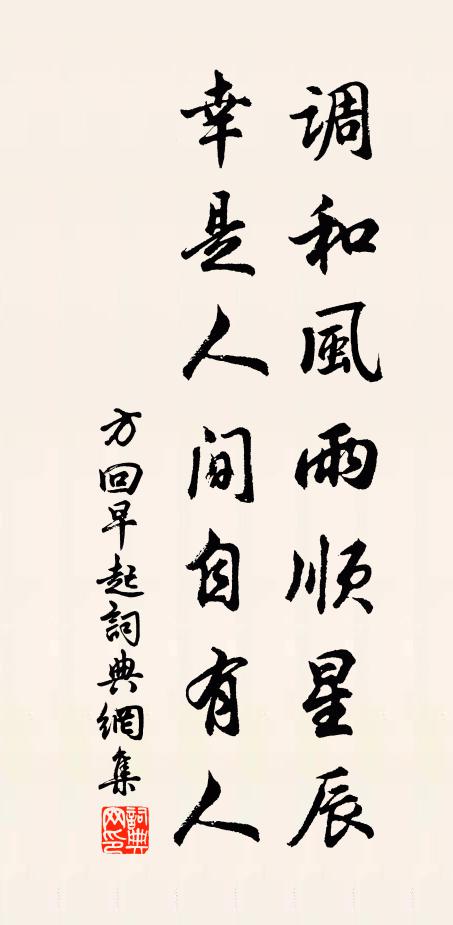 調和風雨順星辰
幸是人間自有人
方回早起詞典網集
詞典
网印